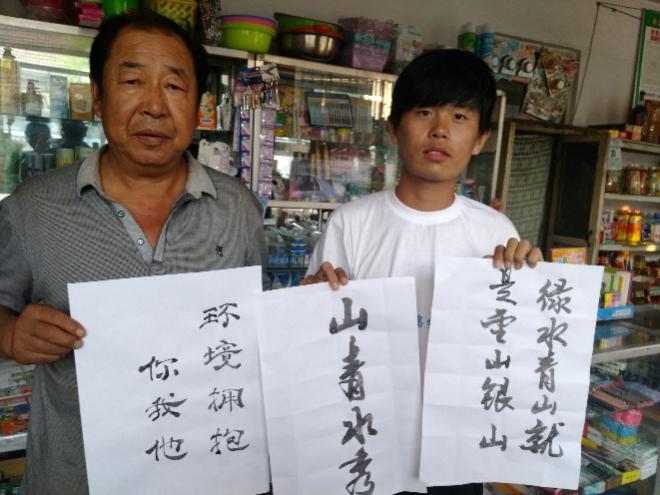 环境拥抱
你我他
山青水秀
绿水青山就
是金山银山